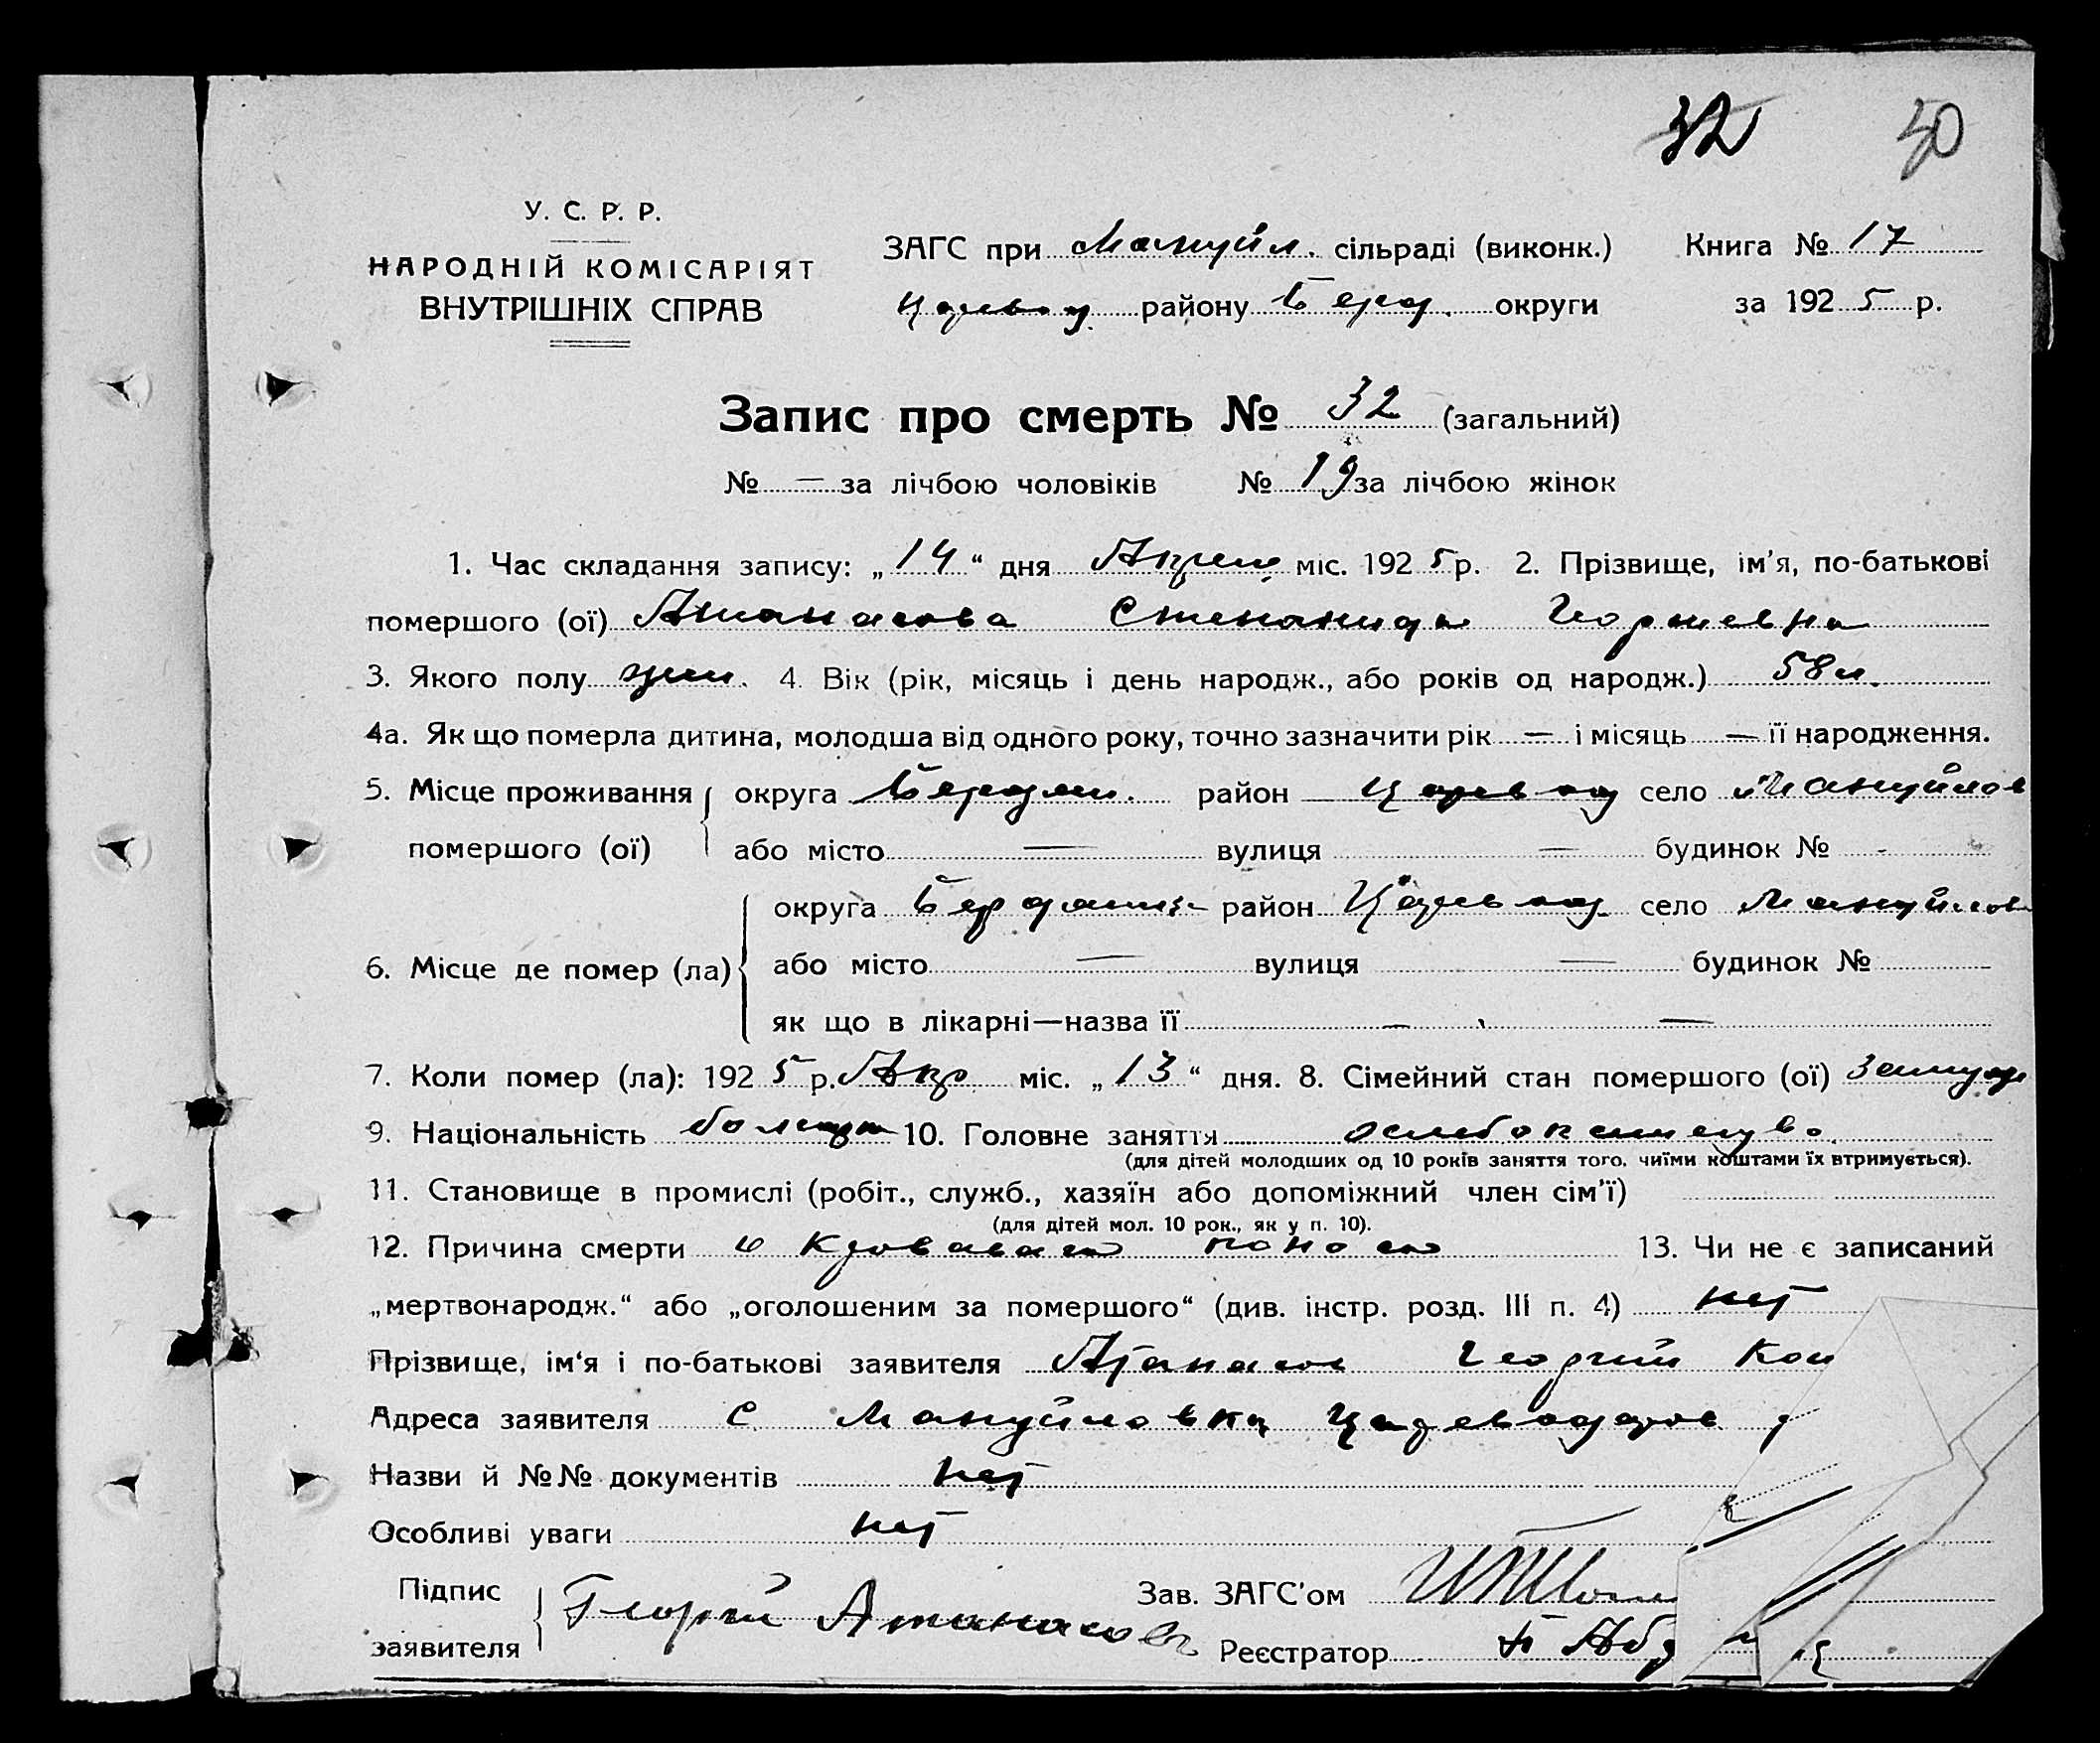 32 30
У. С. Р. Р.
НАРОДНІЙ КОМІСАРІЯТ
ВНУТРІШНІХ СПРАВ
ЗАГС при Мануйл. сільраді (виконк.) Книга № 17
Царевод. району Берд. округи за 1925 р.
Запис про смерть № 32 (загальний)
№ — за лічбою чоловіків № 19 за лічбою жінок
1. Час складання запису: „14“ дня Апреля міс. 1925 р. 2. Прізвище, ім’я, по-батькові
помершого (ої) Атанасова Степанида Георгиевна
3. Якого полу жен. 4. Вік (рік, місяць і день народж., або років од народж.) 58 л.
4а. Як що померла дитина, молодша від одного року, точно зазначити рік — і місяць — її народження.
5. Місце проживання округа Бердян. район Царевод село Мануйлов
помершого (ої) або місто — вулиця — будинок № -
округа Бердянск район Царевод. село Мануйлов
6. Місце де помер (ла) або місто — вулиця — будинок №
як що в лікарні—назва її — —
7. Коли помер (ла): 1925 р. Апр міс. „13“ дня. 8. Сімейний стан помершого (ої) Замуж
9. Національність болгарк 10. Головне заняття
(для дітей молодших од 10 років заняття того, чиїми коштами їх втримується).
11. Становище в промислі (робіт., служб., хазяїн або допоміжний член сім’ї)
(для дітей мол. 10 рок., як у п. 10).
12. Причина смерти Кровавая понос 13. Чи не є записаний
„мертвонародж.“ або „оголошеним за помершого“ (див. інстр. розд. III п. 4) нет
Прізвище, ім‘я і по-батькові заявителя Атанасов Георгий Кон
Адреса заявителя С Мануйловка Цареводаров р
Назви й №№ документів нет
Особливі уваги нет
Підпис
заявителя Георгій Атанасовъ
Зав. ЗАГС’ом
Реєстратор